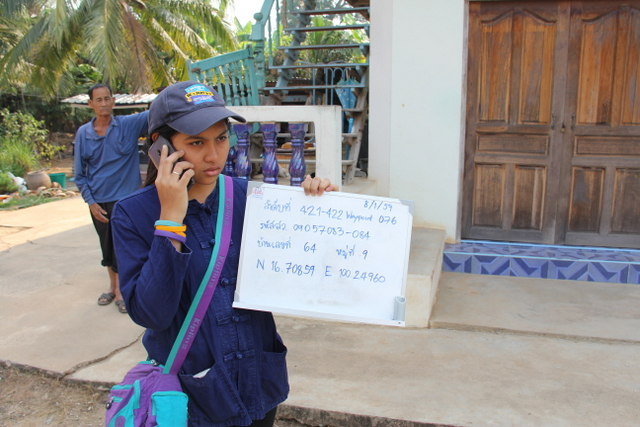 8/1/59
ลำดับที่ 421-422 Waypoint 076
รหัสลิว 09057083-084
บ้านเลขที่ 64 หมู่ที่ 9
N 16.70859 E 100.24960